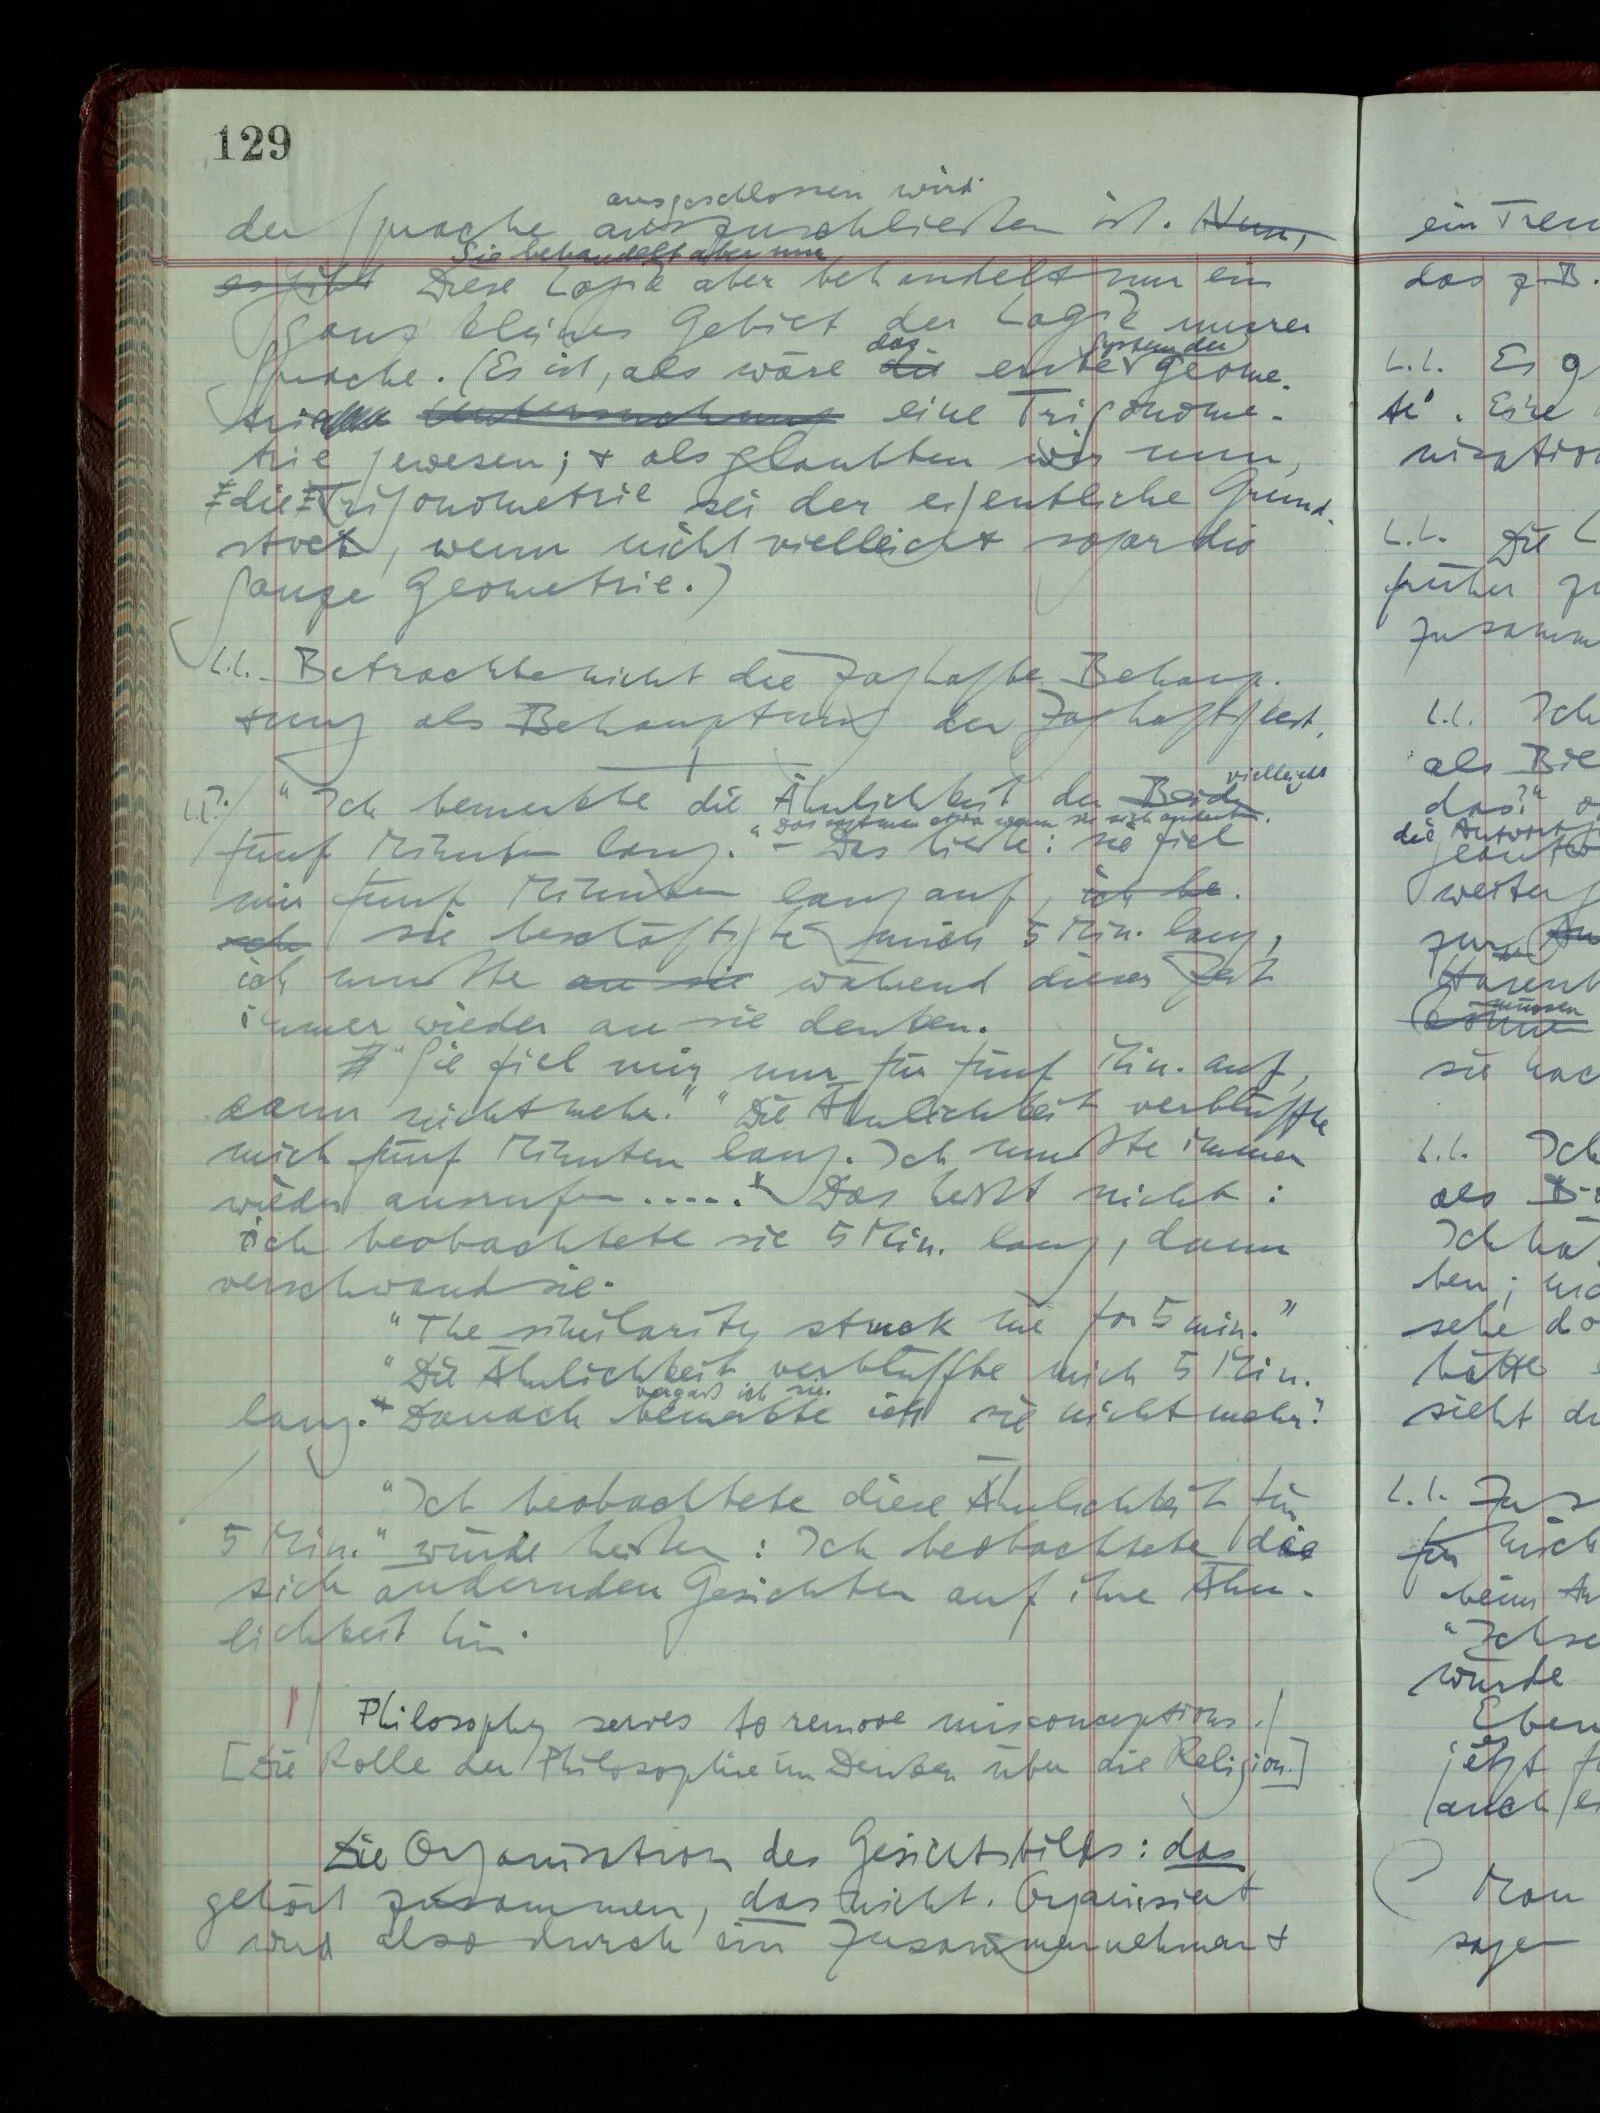 129
ausgeschlossen wird
der Sprache auszuschließen ist. Nun,
Sie behandelt aber nur
es gibt Diese Logik aber behandelt nur ein
ganz kleines Gebiet der Logik unsrer
das System der
Sprache. (Es ist, als wäre die erste Geome-
trie Untersuchung eine Trigonome-
trie gewesen; + als glaubten wir nun,
die Trigonometrie sei der eigentliche Grund-
stock, wenn nicht vielleicht sogar die
ganze Geometrie.)
Betrachte nicht die zaghafte Behaup-
tung als Behauptung der Zaghaftigkeit.
vielleicht
"Ich bemerkte die Ähnlichkeit der Beiden
"Das sagt man etwa wenn sie sich ändert.
fünf Minuten lang." – Das hieße: sie fiel
mir fünf Minuten lang auf, ich be-
sch sie beschäftigte mich 5 Min. lang,
ich mußte an sie während dieser Zeit
immer wieder an sie denken.
"Sie fiel mir nur für fünf Min. auf,
dann nicht mehr." "Die Ähnlichkeit verblüffte
mich fünf Minuten lang. Ich mußte immer
wieder ausrufen ....." Das heißt nicht:
ich beobachtete sie 5 Min. lang, dann
verschwand sie.
"The similarity struck me for 5 min."
"Die Ähnlichkeit verblüffte mich 5 Min.
vergaß ich sie.
lang." Danach bemerkte ich sie nicht mehr."
"Ich beobachtete diese Ähnlichkeit für
5 Min." würde heißen: Ich beobachtete die
sich ändernden Gesichter auf ihre Ähn-
lichkeit hin.
Philosophy serves to remove misconceptions.
[Die Rolle der Philosophie im Denken über die Religion.]
Die Organisation des Gesichtsbilds: das
gehört zusammen, das nicht. Organisiert
wird also durch ein Zusammennehmen +
ein Tren
das z.B.
Es g
te". Eine
nisation
Die L
früher zu
zusamm
Ich
als Bil
das?" o
die Antwort
weiter
zur
Hasenk
müssen
könne
sie hac
Ich
als B
Ich hä
ben; nic
sehe do
hätte
sieht di
Zu s
für mich
beim An
"Ich se
würde
Eben
jetzt f
auch
Man
sagen